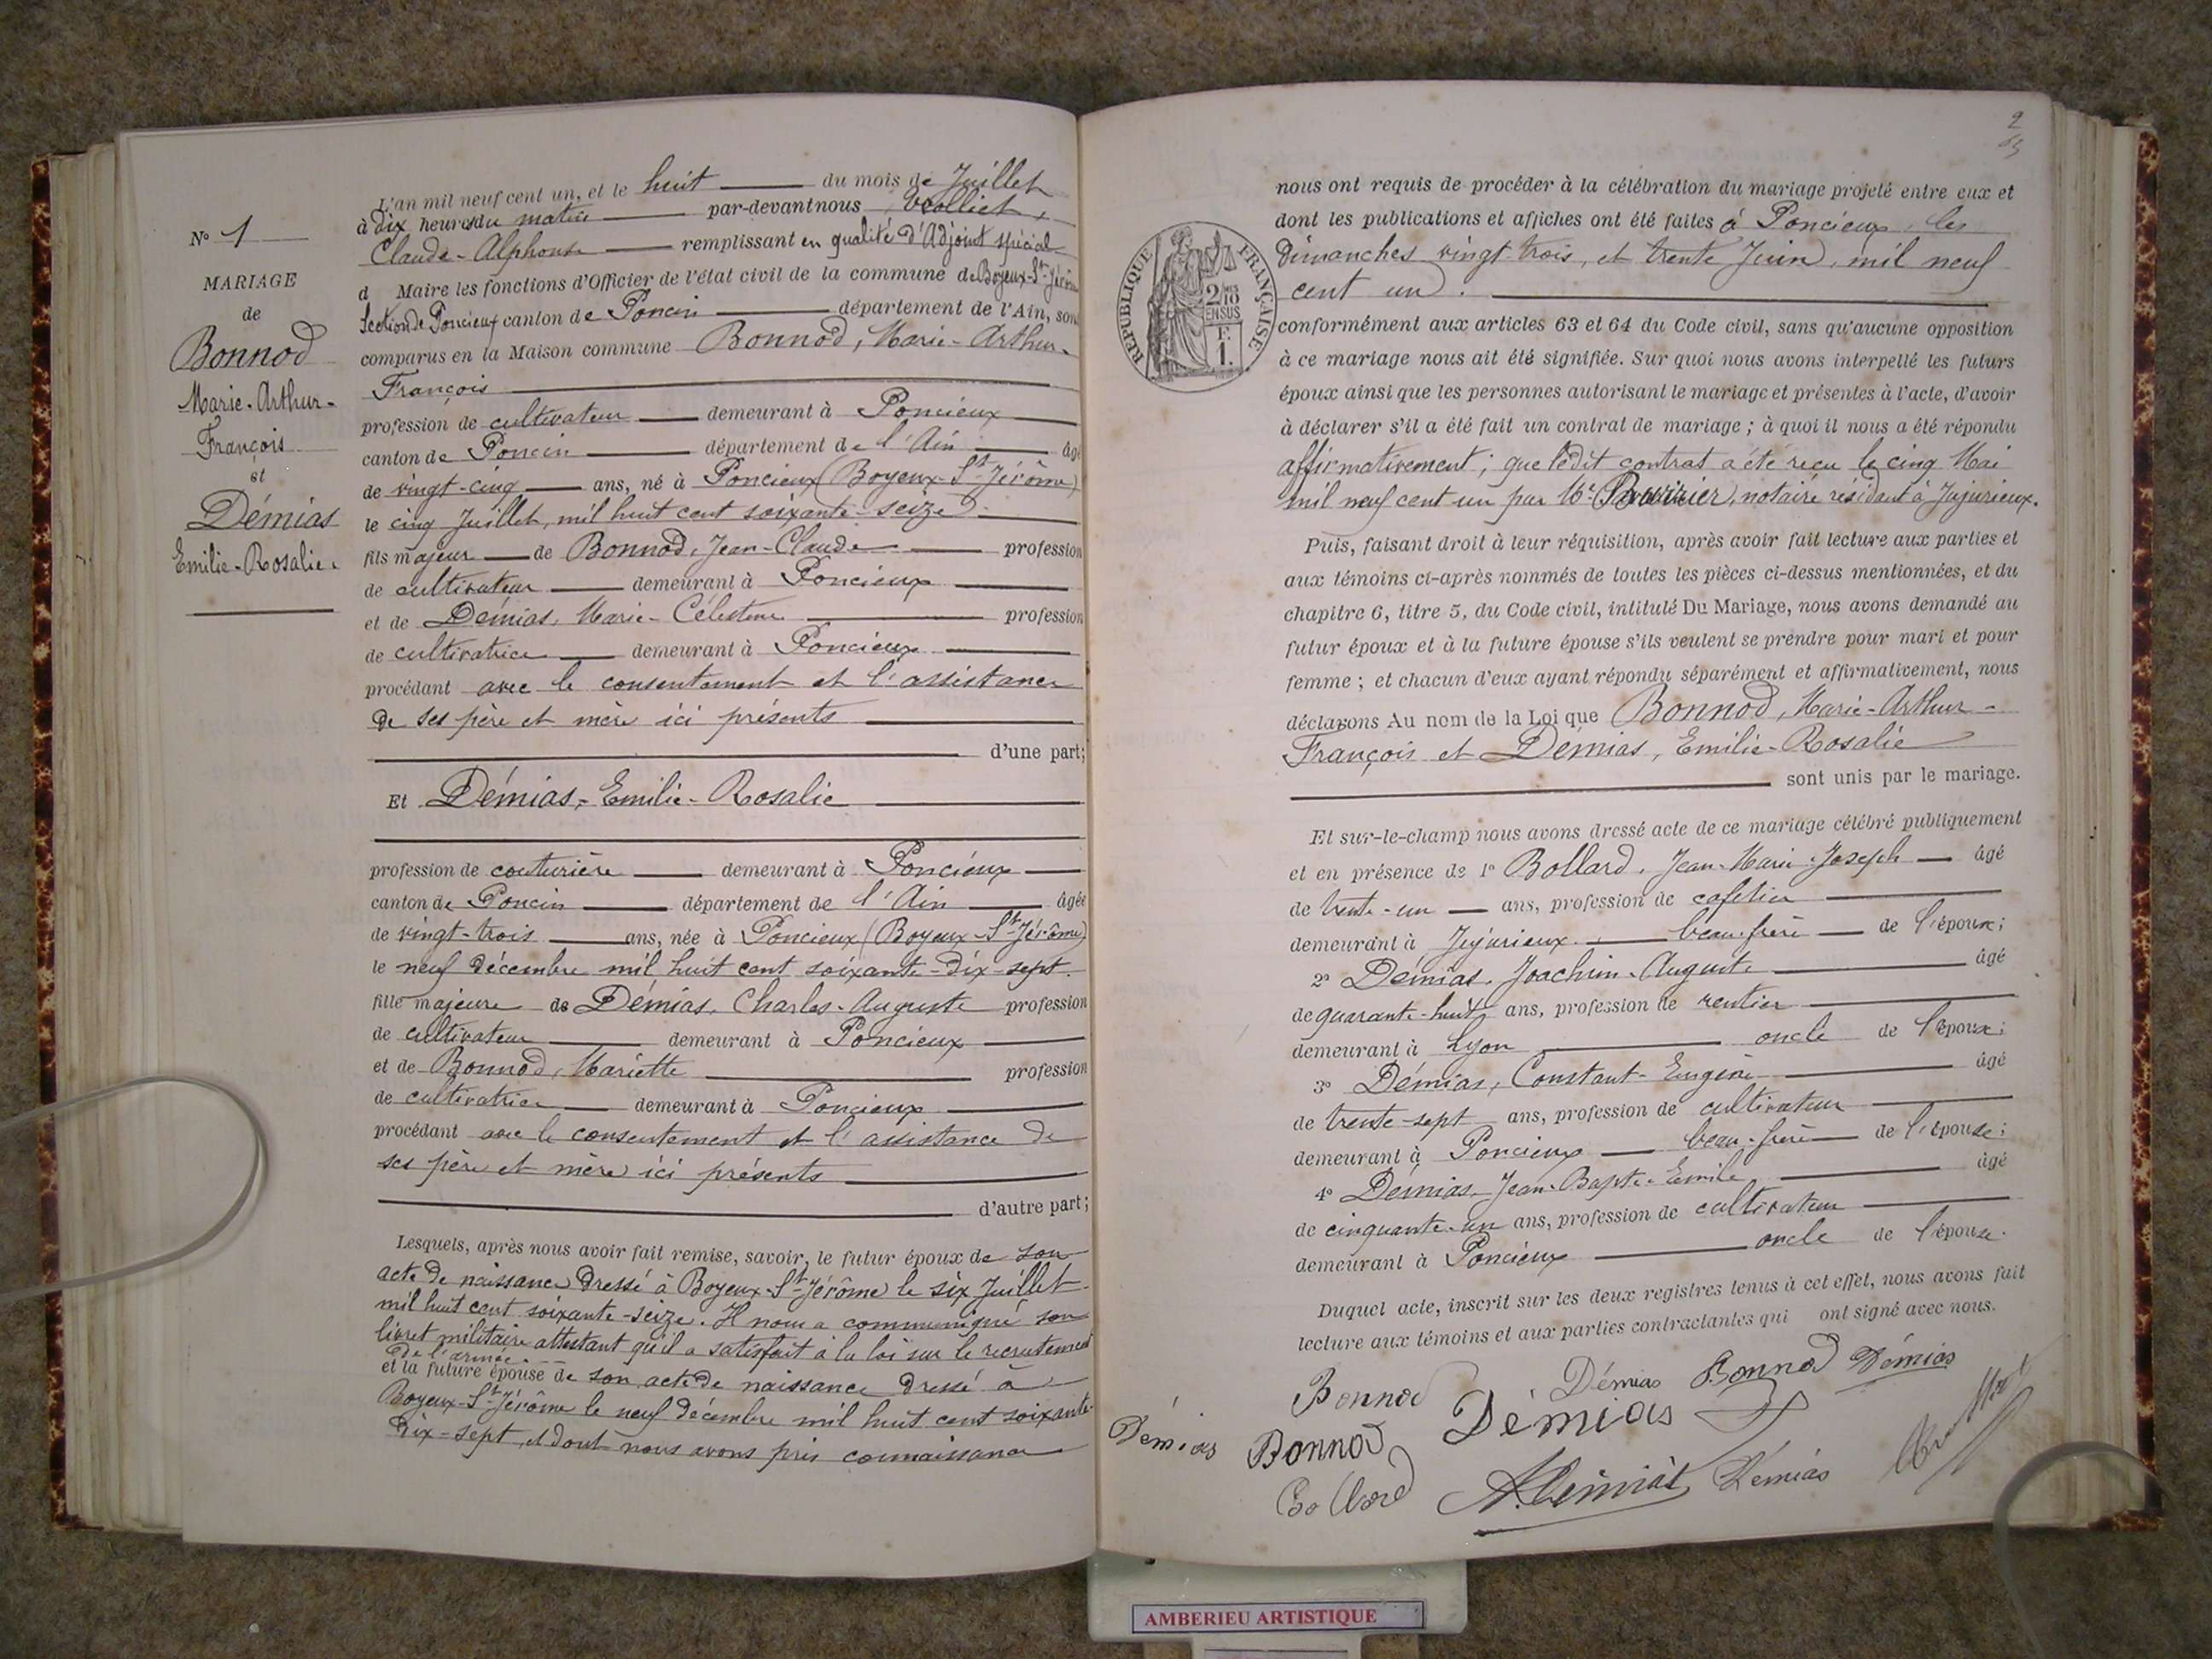 N° 1
MARIAGE
de
Bonnod
Marie-Arthur-
François
et
Démias
Emilie-Rosalie.
L'an mil neuf cent un, et le huit du mois de Juillet
à dix heures du matin par-devant nous
Claude-Alphonse remplissant en qualité d'Adjoint spécial
d Maire les fonctions d'Officier de l'état civil de la commune de Boyeux-St-Jérôme
Section de Poncieux canton de Poncin département de l'Ain, son
comparus en la Maison commune Bonnod, Marie-Arthur-
François
profession de cultivateur demeurant à Poncieux
canton de Poncin département de l'Ain âgé
de vingt-cinq ans, né à Poncieux (Boyeux-St-Jérôme)
le cinq Juillet, mil huit cent soixante-seize.
fils majeur de Bonnod, Jean-Claude profession
de cultivateur demeurant à Poncieux
et de Démias, Marie-Célestine profession
de cultivatrice demeurant à Poncieux
procédant avec le consentement et l'assistance
de ses père et mère ici présents
d'une part;
Et Démias, Emilie-Rosalie
profession de couturière demeurant à Poncieux
canton de Poncin département de l'Ain âgée
de vingt-trois ans, née à Poncieux (Boyeux-St-Jérôme)
le neuf décembre mil huit cent soixante-dix-sept.
fille majeure de Démias, Charles-Auguste profession
de cultivateur demeurant à Poncieux
et de Bonnod, Mariette profession
de cultivatrice demeurant à Poncieux
procédant avec le consentement et l'assistance de
ses père et mère ici présents
d'autre part;
Lesquels, après nous avoir fait remise, savoir, le futur époux de son
acte de naissance dressé à Boyeux-St-Jérôme le six Juillet
mil huit cent soixante-seize. Il nous a communiqué son
livret militaire attestant qu'il a satisfait à la loi sur le recrutement
de l'armée.
et la future épouse de son acte de naissance dressé à
Boyeux-St-Jérôme le neuf décembre mil huit cent soixante-
dix-sept, et dont nous avons pris connaissance
2
RÉPUBLIQUE FRANÇAISE
2/10
EN SUS
F.
1.
nous ont requis de procéder à la célébration du mariage projeté entre eux et
dont les publications et affiches ont été faites à Poncieux, les
Dimanches vingt-trois, et trente Juin, mil neuf
cent un.
conformément aux articles 63 et 64 du Code civil, sans qu'aucune opposition
à ce mariage nous ait été signifiée. Sur quoi nous avons interpellé les futurs
époux ainsi que les personnes autorisant le mariage et présentes à l'acte, d'avoir
à déclarer s'il a été fait un contrat de mariage ; à quoi il nous a été répondu
affirmativement; que ledit contrat a été reçu le cinq Mai
mil neuf cent un par Me notaire résidant à Jujurieux.
Puis, faisant droit à leur réquisition, après avoir fait lecture aux parties et
aux témoins ci-après nommés de toutes les pièces ci-dessus mentionnées, et du
chapitre 6, titre 5, du Code civil, intitulé Du Mariage, nous avons demandé au
futur époux et à la future épouse s'ils veulent se prendre pour mari et pour
femme ; et chacun d'eux ayant répondu séparément et affirmativement, nous
déclarons Au nom de la Loi que Bonnod, Marie-Arthur-
François et Démias, Emilie-Rosalie
sont unis par le mariage.
Et sur-le-champ nous avons dressé acte de ce mariage célébré publiquement
et en présence de 1° Bollard, Jean-Marie-Joseph âgé
de trente-un ans, profession de cafetier
demeurant à Jujurieux beau-frère de l'époux;
2° Démias, Joachim-Auguste âgé
de quarante-huit ans, profession de rentier
demeurant à Lyon oncle de l'époux;
3° Démias, Constant-Eugène âgé
de trente-sept ans, profession de cultivateur
demeurant à Poncieux beau-frère de l'épouse;
4° Démias, Jean-Bapte-Emile âgé
de cinquante-un ans, profession de cultivateur
demeurant à Poncieux oncle de l'épouse.
Duquel acte, inscrit sur les deux registres tenus à cet effet, nous avons fait
lecture aux témoins et aux parties contractantes qui ont signé avec nous.
Bonnod Démias Bonnod Démias
Démias Bonnod Démias
Bollard A. Démias Démias
AMBERIEU ARTISTIQUE